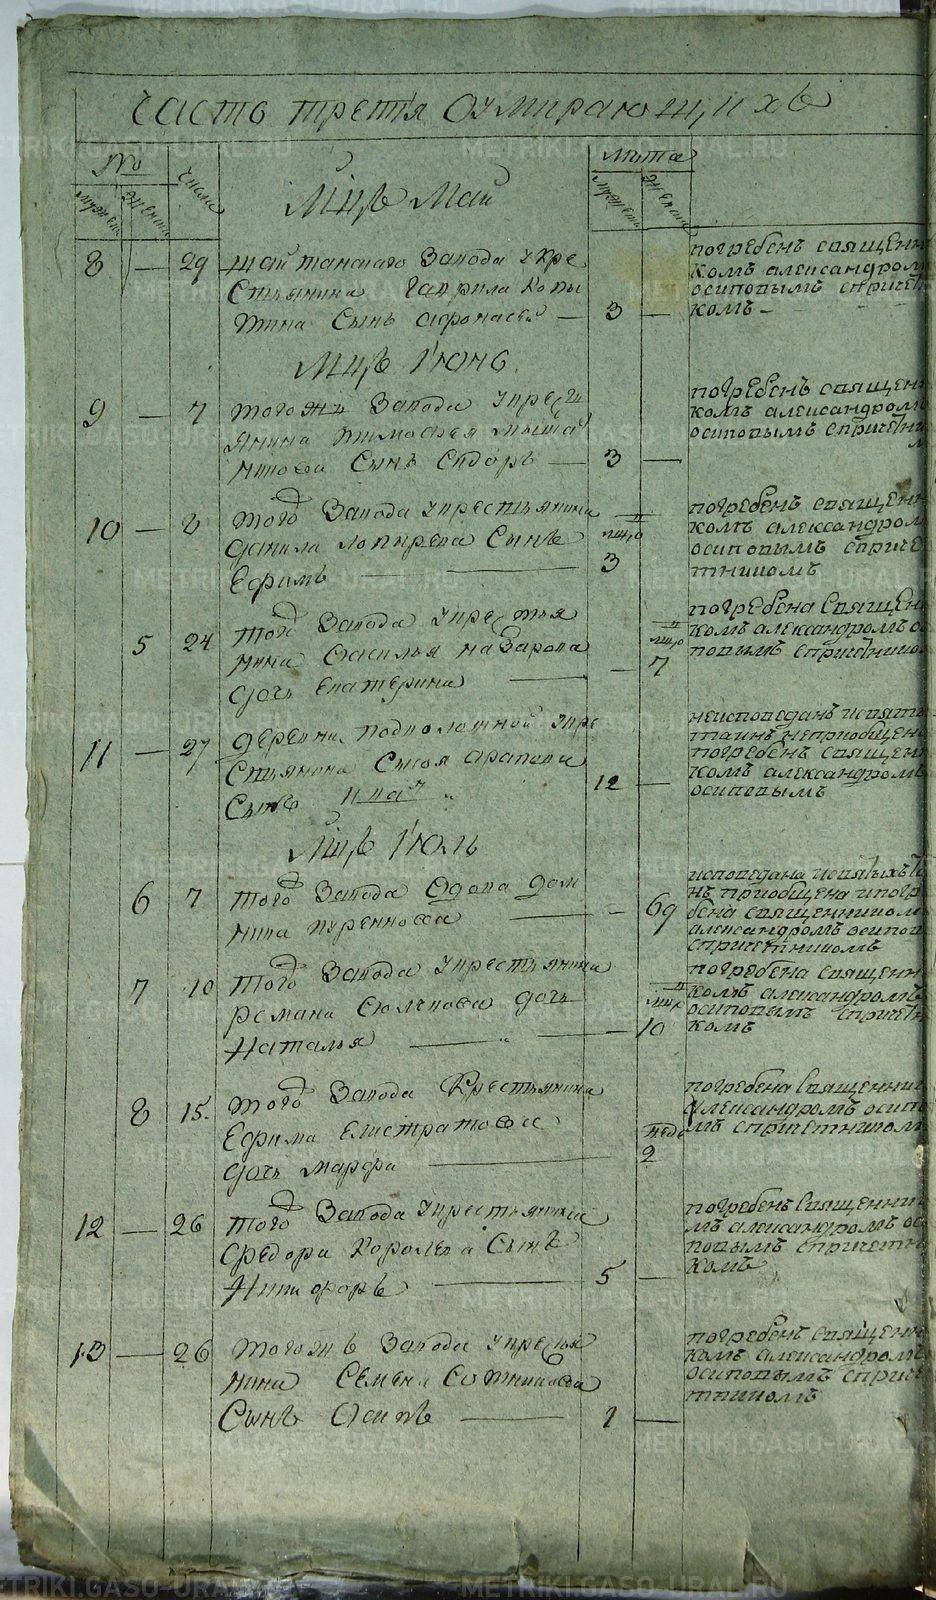 Часть третія Оумирающихъ
No
мужеска
женска
числа
Мцъ Май
лѣта
мужеска
женска
8 — 29 Шайтанскаго Завода у кре
стьянина Гаврила Копы
тина Сынъ Афонасей — 3 —
погребенъ священни
комъ александромъ
осиповымъ спричетни
комъ —
Мцъ Іюнь
9 — 7 того жъ Завода у крестъ
янина тимофея
Сынъ Сидоръ — 3 —
погребенъ священни
комъ александромъ
осиповымъ спричетни
10 — 8 того Завода у крестьянина
данила лапырева Сынъ
Ефимъ — 3
погребенъ священни
комъ александромъ
осиповымъ сприче
тникомъ
5 24 того Завода у крестья
нина Василья назарова
дочь екатерина — — 7
погребена Священни
комъ александромъ ос
иповымъ спричетником
11 — 27 деревни подволошной у кре
стьянина Сысоя арапова
Сынъ 12 —
неисповеданъ исвяты
таинъ неприобщенъ
погребенъ священни
комъ александромъ
осиповымъ
Мцъ Іюль
6 7 того Завода вдова дом
ника — — 69
исповедана исвятыхъ та
нъ приобщена ипогре
бена священникомъ
александромъ осипов
спричетникомъ
7 10 того Завода у крестьянина
романа дочь
Наталья — — 10
погребена священни
комъ александромъ
осиповымъ спричетни
комъ
8 15. того Завода у Крестьянина
Ефима Елистратова
дочь марфа — неде 2
погребена Священнико
александромъ осипо
мъ спричетником
12 — 26 того Завода у крестьянина
Федора Королева Сынъ
Никифоръ — 5 —
погребенъ Священнико
мъ александромъ ос
иповымъ спричетни
комъ
13 — 26 тогожъ Завода у крестья
нина Семена Сотникова
Сынъ Осипъ — 1 —
погребенъ Священни
комъ александромъ
осиповымъ спричет
никомъ
METRIKI.GASO-URAL.RU